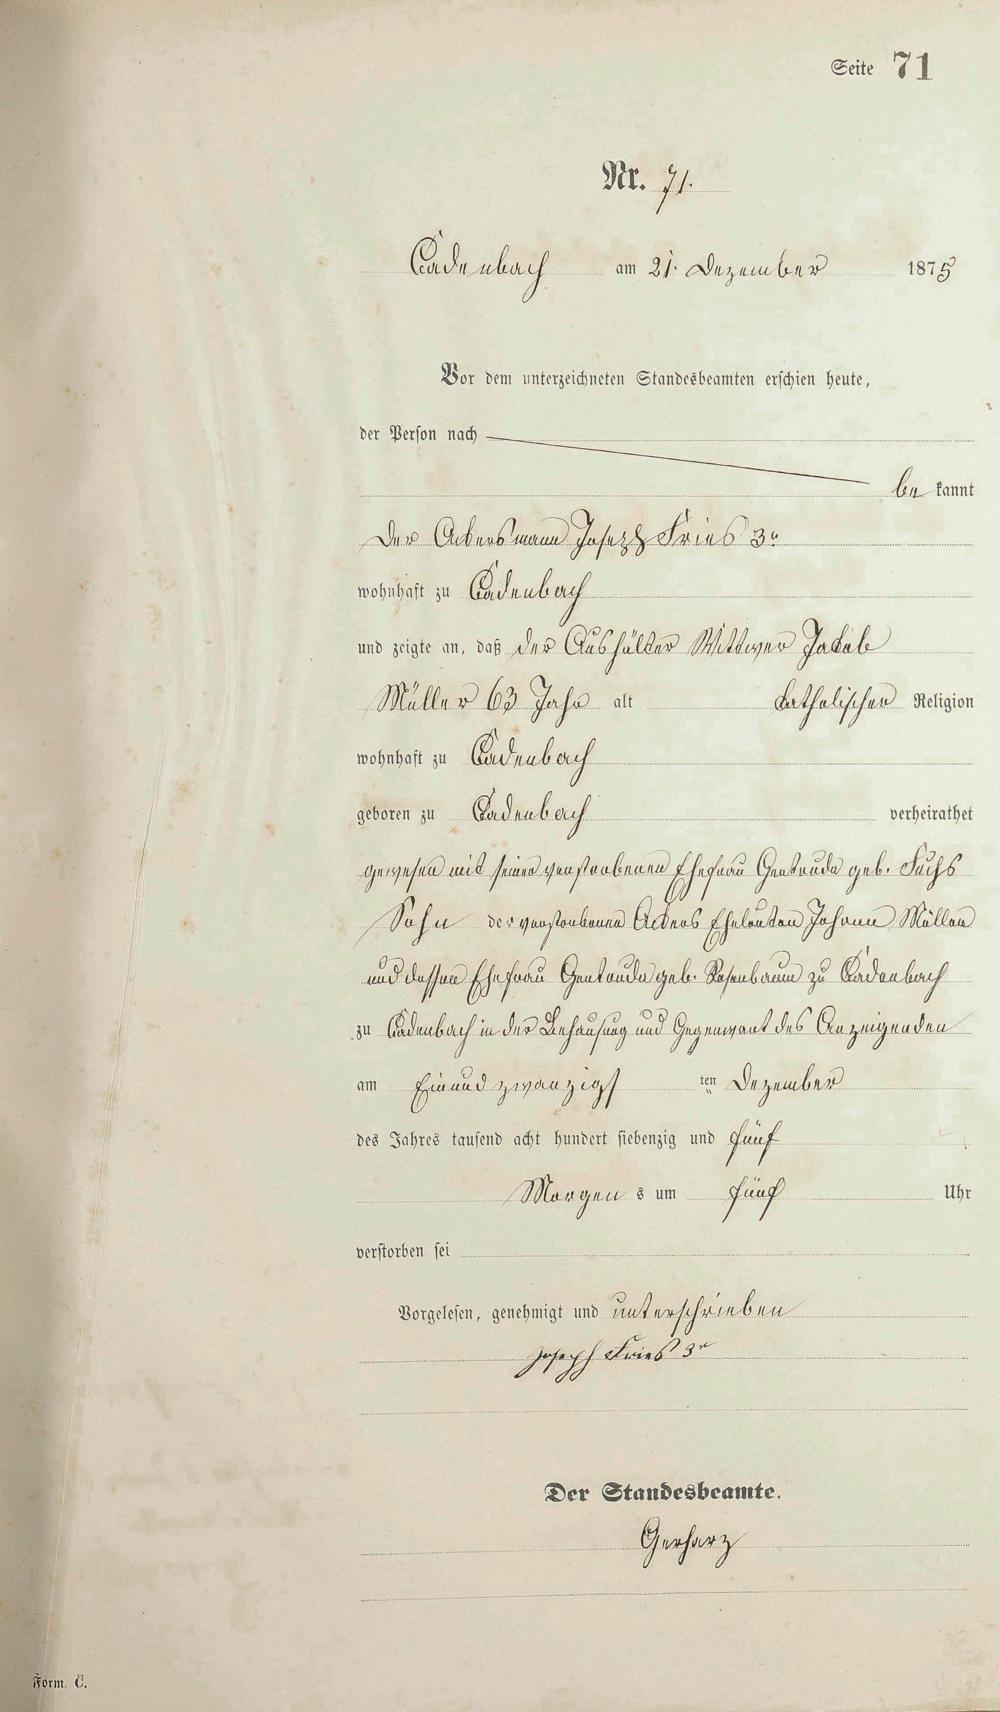 Seite 71
Nr. 71.
Cadenbach am 21. Dezember 1875
Vor dem unterzeichneten Standesbeamten erschien heute,
der Person nach
be kannt
Der Ackersmann Joseph Fries 3r
wohnhaft zu Cadenbach
und zeigte an, daß der Aushälter Wittwer Jakob
Müller 63 Jahr alt katholischer Religion
wohnhaft zu Cadenbach
geboren zu Cadenbach verheirathet
gewesen mit seiner verstorbenen Ehefrau Gertruda geb. Fuchs
Sohn der verstorbenen Ackers Eheleuten Johann Müller
und dessen Ehefrau Gertruda geb. Rosenbaum zu Cadenbach
zu Cadenbach in der Behausung und Gegenwart des Anzeigenden
am Einund zwanzigs ten Dezember
des Jahres tausend acht hundert siebenzig und fünf
Morgen s um fünf Uhr
verstorben sei
Vorgelesen, genehmigt und unterschrieben
Joseph Fries 3r
Der Standesbeamte.
Gerharz
Form. C.